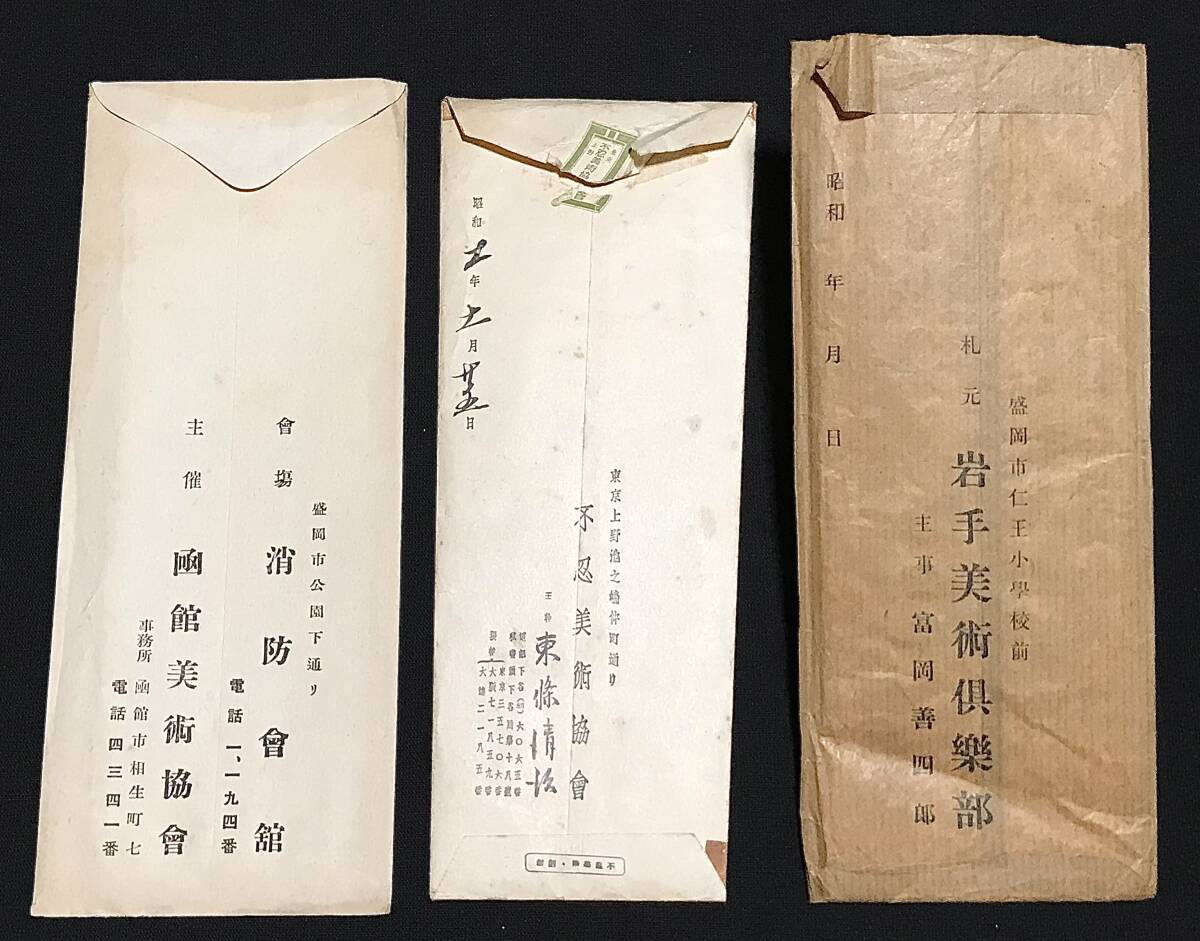 盛岡市公園下通り
會場 消防會舘
電話 一、一九四番
主催 凾館美術協會
事務所 凾館市相生町七
電話四三四一番
東京上野池之端仲町通り
不忍美術協會
主幹 東條情
昭和五年十一月廿五日
盛岡市仁王小學校前
札元 岩手美術倶樂部
主事 富岡善四郎
昭和 年 月 日